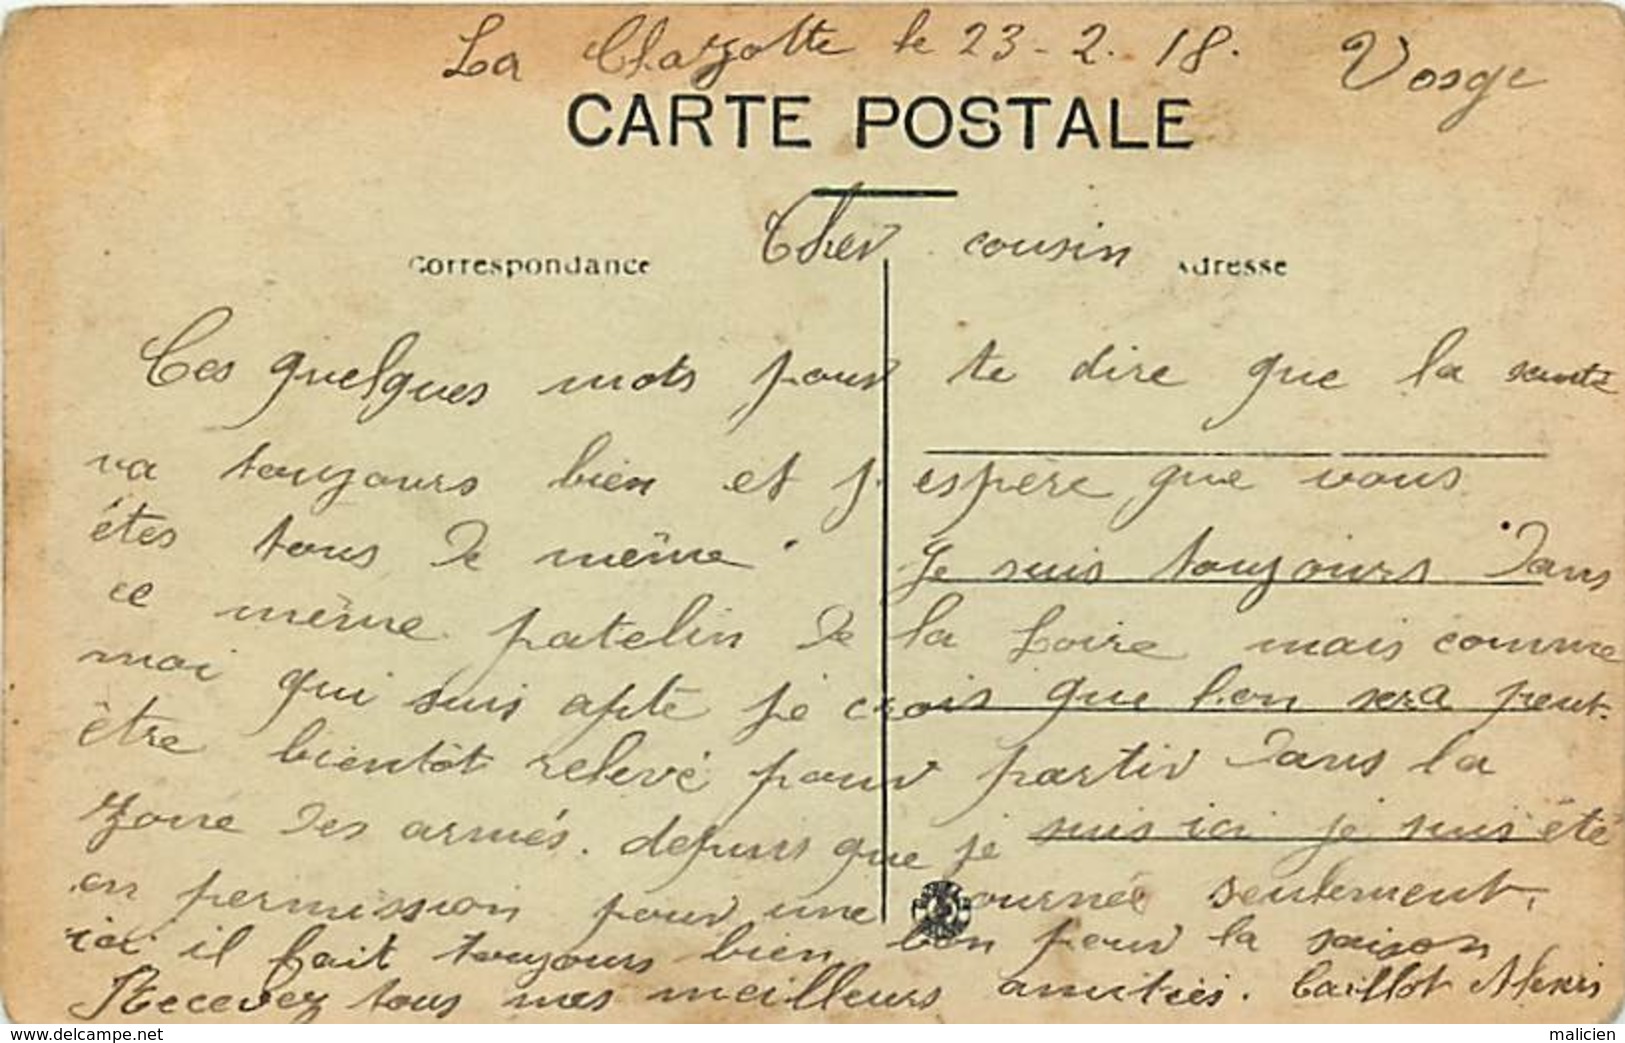 La Chazotte le 23-2.18. Vosge
CARTE POSTALE
Cher cousin
Correspondance Adresse
Ces quelques mots pour te dire que la santé
va toujours bien et j'espère que vous
êtes tous de même. Je suis toujours dans
ce même patelin de la Loire mais comme
moi qui suis apte je crois que l'on sera peut-
être bientôt relevé pour partir dans la
zone des armés. depuis que je suis ici je suis été
en permission pour une journée seulement,
ici il fait toujours bien bon pour la saison
Recevez tous mes meilleurs amitiés. Caillot Alexis
© delcampe.net
malicien